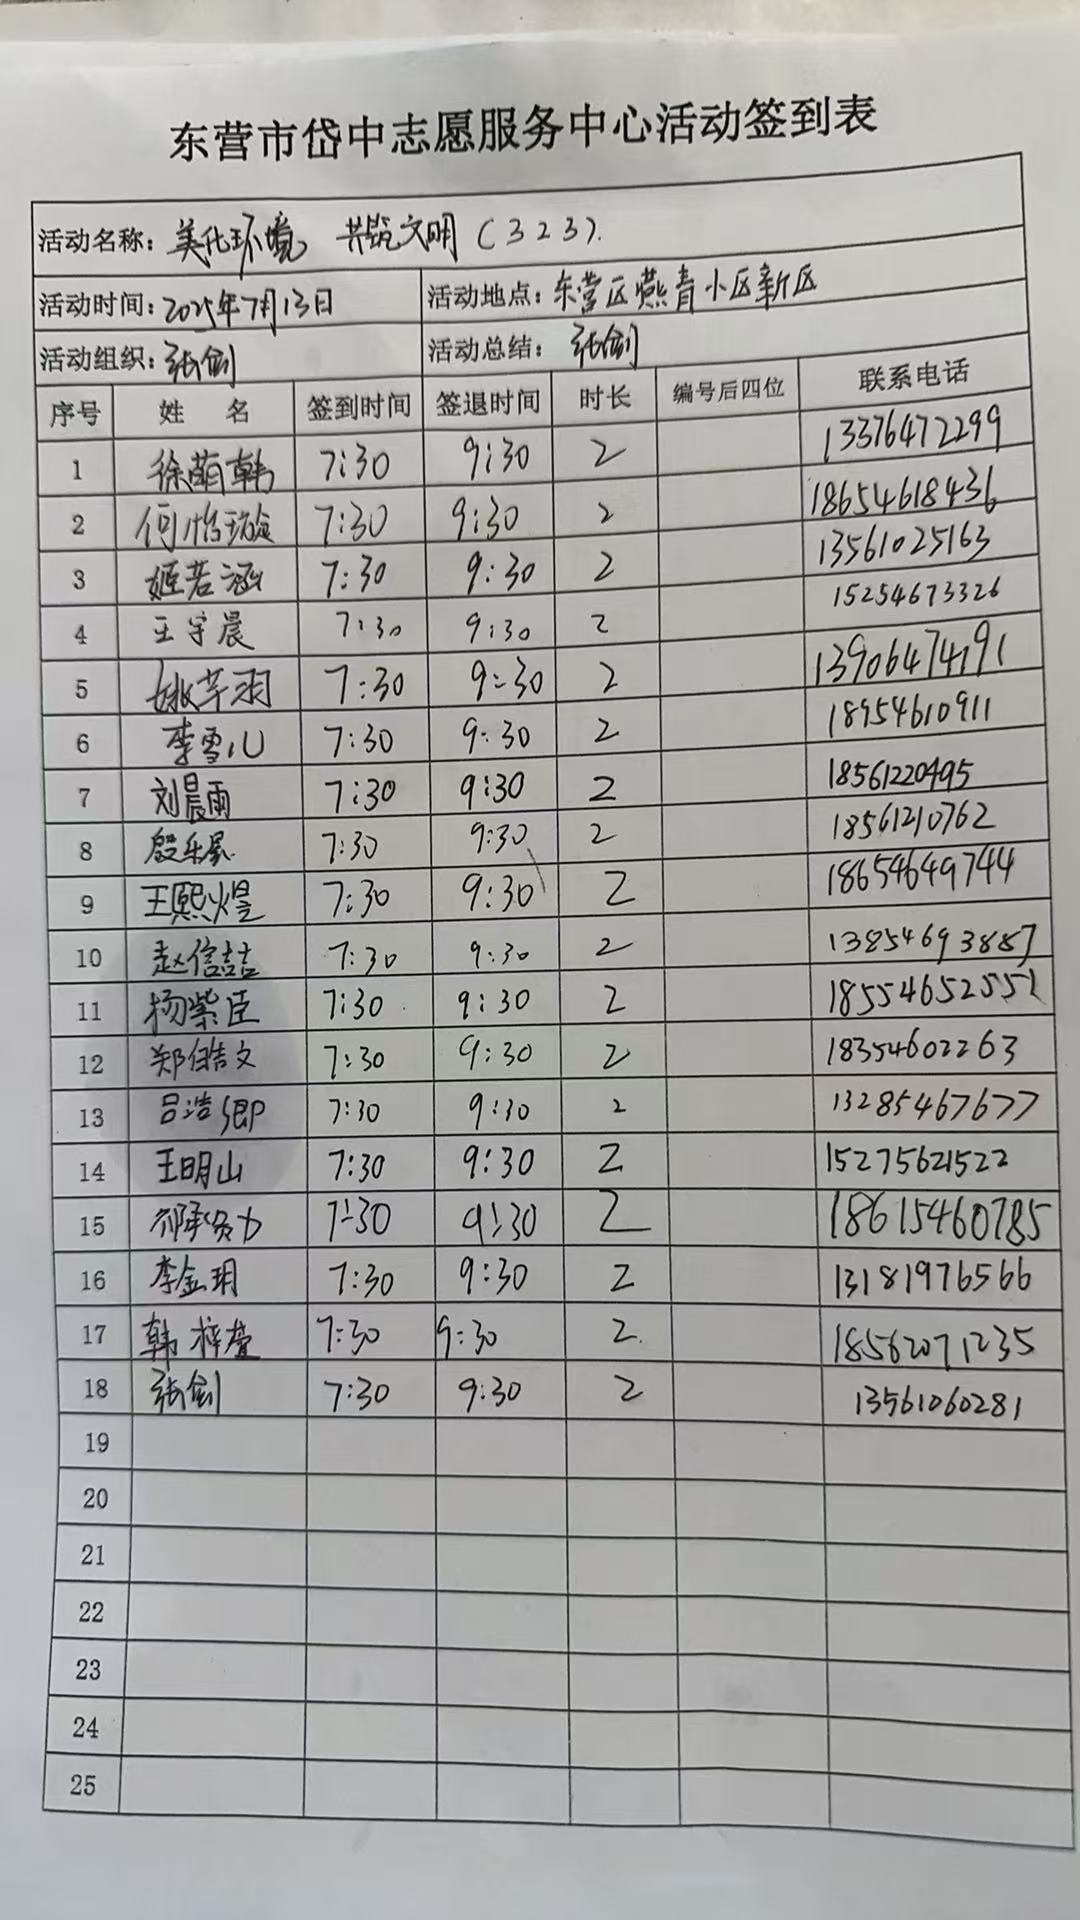 东营市岱中志愿服务中心活动签到表
活动名称：美化环境 共筑文明（323）.
活动时间：2025年7月13日 活动地点：东营区燕青小区新区
活动组织：张剑 活动总结：张剑
序号 姓 名 签到时间 签退时间 时长 编号后四位 联系电话
1 徐萌韩 7:30 9:30 2 13376472299
2 何怡璇 7:30 9:30 2 18654618436
3 姬若涵 7:30 9:30 2 13561025163
4 王宇晨 7:30 9:30 2 15254673326
5 姚芊羽 7:30 9:30 2 13906474191
6 李雪儿 7:30 9:30 2 18954610911
7 刘晨雨 7:30 9:30 2 18561220495
8 殷乐 7:30 9:30 2 18561210762
9 王熙煜 7:30 9:30 2 18654649744
10 赵信喆 7:30 9:30 2 13854693887
11 杨紫臣 7:30 9:30 2 18554652551
12 郑皓文 7:30 9:30 2 18354602263
13 吕浩卿 7:30 9:30 2 13285467677
14 王明山 7:30 9:30 2 15275621522
15 7:30 9:30 2 18615460785
16 李金玥 7:30 9:30 2 13181976566
17 韩梓萱 7:30 9:30 2. 18562071235
18 张剑 7:30 9:30 2 13561060281
19
20
21
22
23
24
25